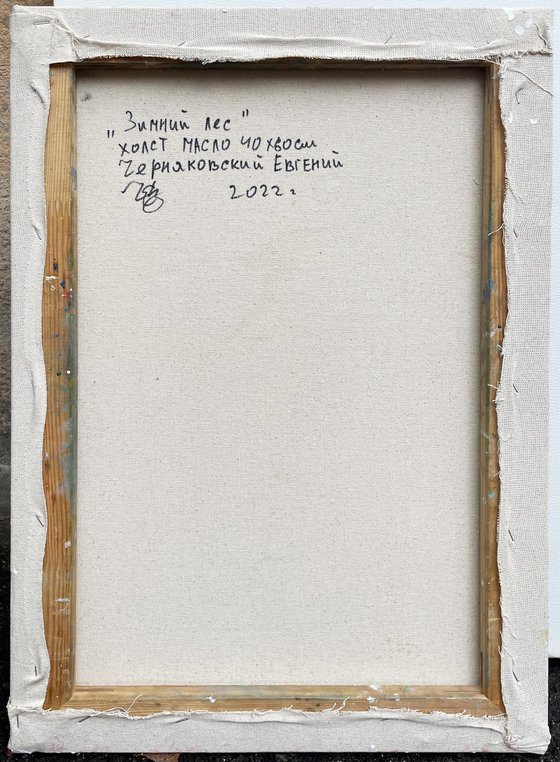 „Зимний лес"
холст масло 40х60см
Черняковский Евгений
2022г